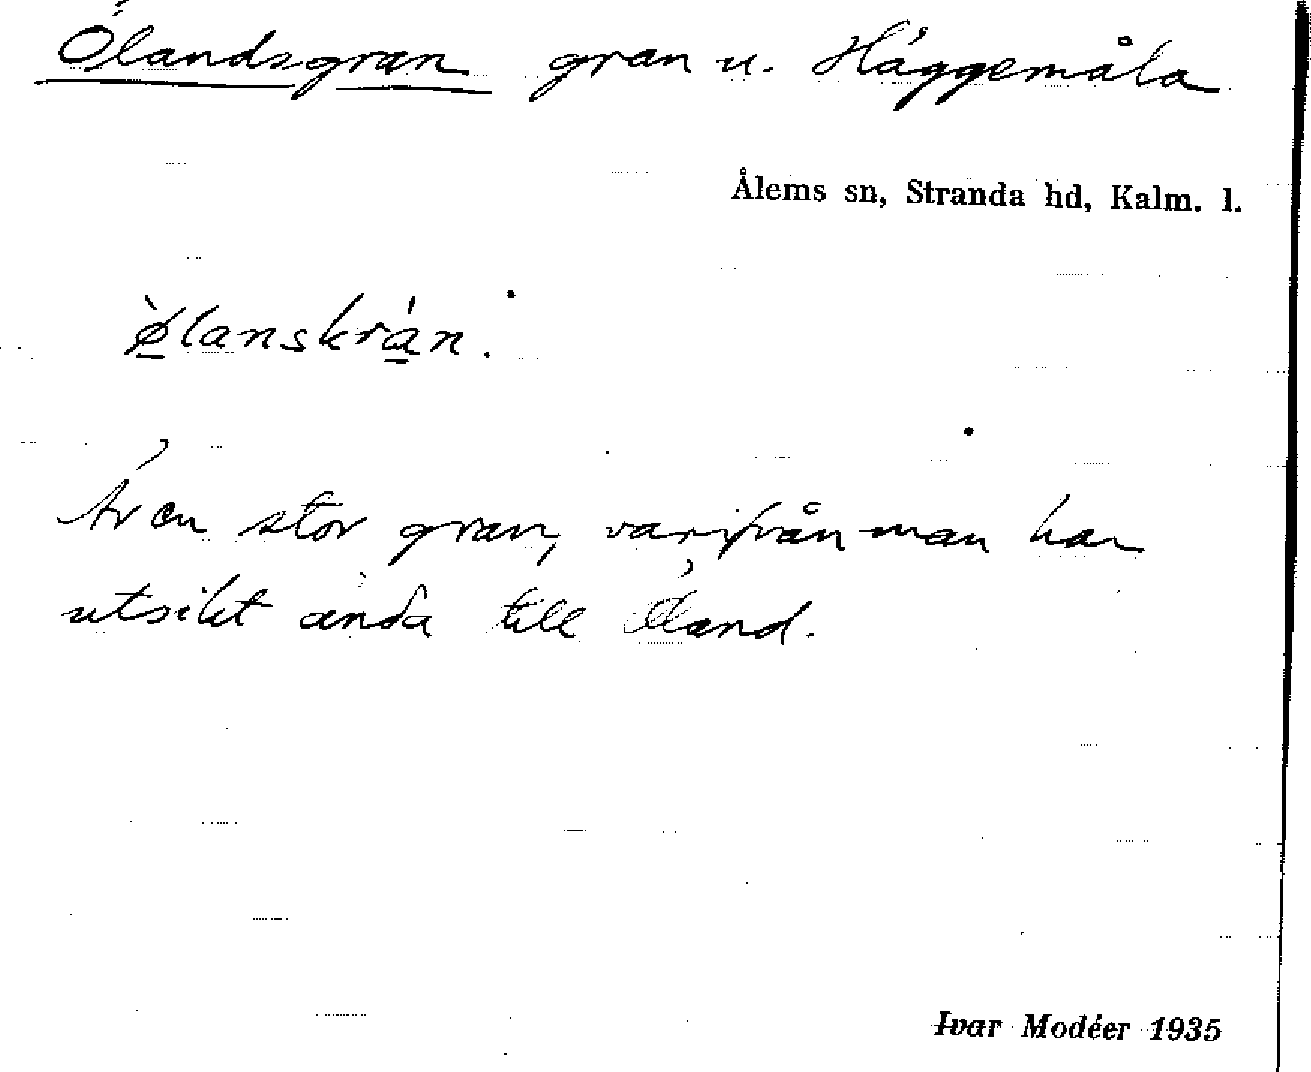 Ölandsgran gran u. Häggemåla
Ålems sn, Stranda hd, Kalm. l.
ø̀lanskrán.
Är en stor gran, varifrån man har
utsikt ända till Öland.
Ivar Modéer 1935